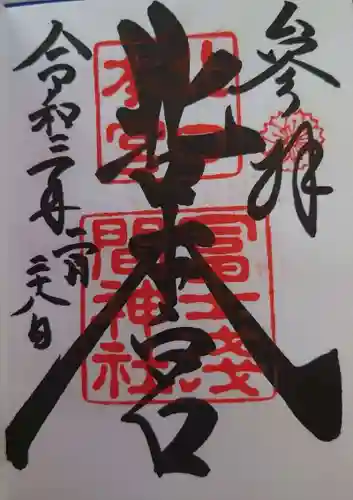 參拝
北口本宮
令和三年二月二十八日
北口
本宮
冨士淺
間神社